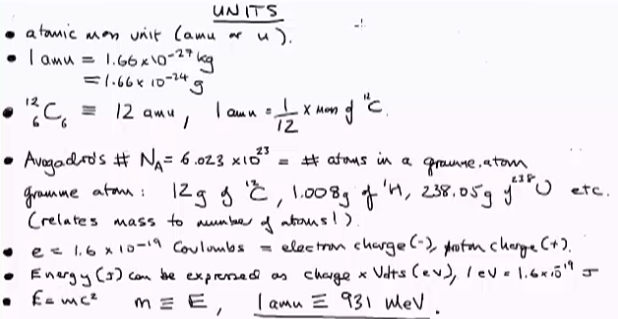 UNITS
• atomic mass unit (amu or u).
• 1 amu = 1.66 x 10⁻²⁷ kg
= 1.66 x 10⁻²⁴ g
• ¹²₆C₆ ≡ 12 amu, 1 amu = 1/12 x mass of ¹²C.
• Avogadro's # N_A = 6.023 x10²³ = # atoms in a gramme.atom
gramme atom: 12g of ¹²C, 1.008g of ¹H, 238.05g of ²³⁸U etc.
(relates mass to number of atoms!).
• e = 1.6 x 10⁻¹⁹ Coulombs = electron charge (-), proton charge (+).
• Energy (J) can be expressed as charge x Volts (eV), 1 eV = 1.6x10⁻¹⁹ J
• E = mc² m ≡ E, 1 amu ≡ 931 MeV.